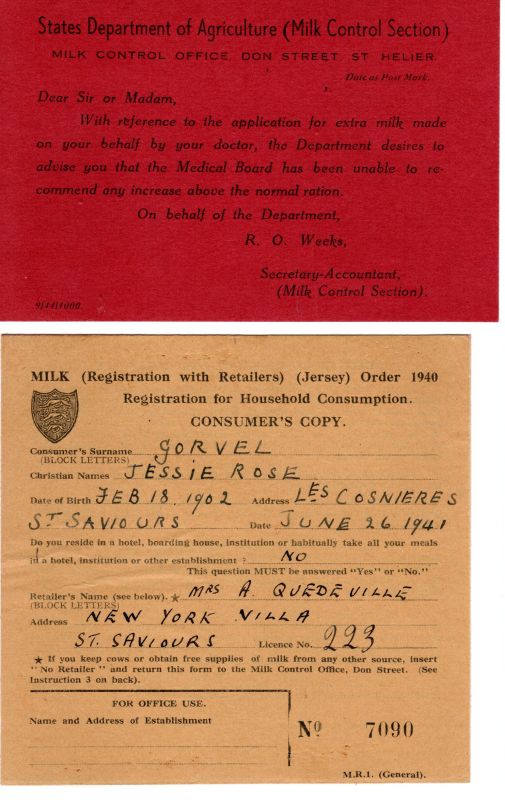 States Department of Agriculture (Milk Control Section)
MILK CONTROL OFFICE, DON STREET, ST HELIER.
Date as Post Mark.
Dear Sir or Madam,
With reference to the application for extra milk made
on your behalf by your doctor, the Department desires to
advise you that the Medical Board has been unable to re-
commend any increase above the normal ration.
On behalf of the Department,
R. O. Weeks,
Secretary-Accountant,
(Milk Control Section).
MILK (Registration with Retailers) (Jersey) Order 1940
Registration for Household Consumption.
CONSUMER'S COPY.
Consumer's Surname GORVEL
(BLOCK LETTERS)
Christian Names JESSIE ROSE
Date of Birth FEB 18. 1902 Address LES COSNIERES
ST SAVIOURS Date JUNE 26. 1941
Do you reside in a hotel, boarding house, institution or habitually take all your meals
in a hotel, institution or other establishment? NO
This question MUST be answered "Yes" or "No."
Retailer's Name (see below). ★ MRS A. QUEDEVILLE
(BLOCK LETTERS)
Address NEW YORK VILLA
ST. SAVIOURS Licence No. 223
★ If you keep cows or obtain free supplies of milk from any other source, insert
"No Retailer" and return this form to the Milk Control Office, Don Street. (See
Instruction 3 on back).
FOR OFFICE USE.
Name and Address of Establishment
No 7090
M.R.1. (General).